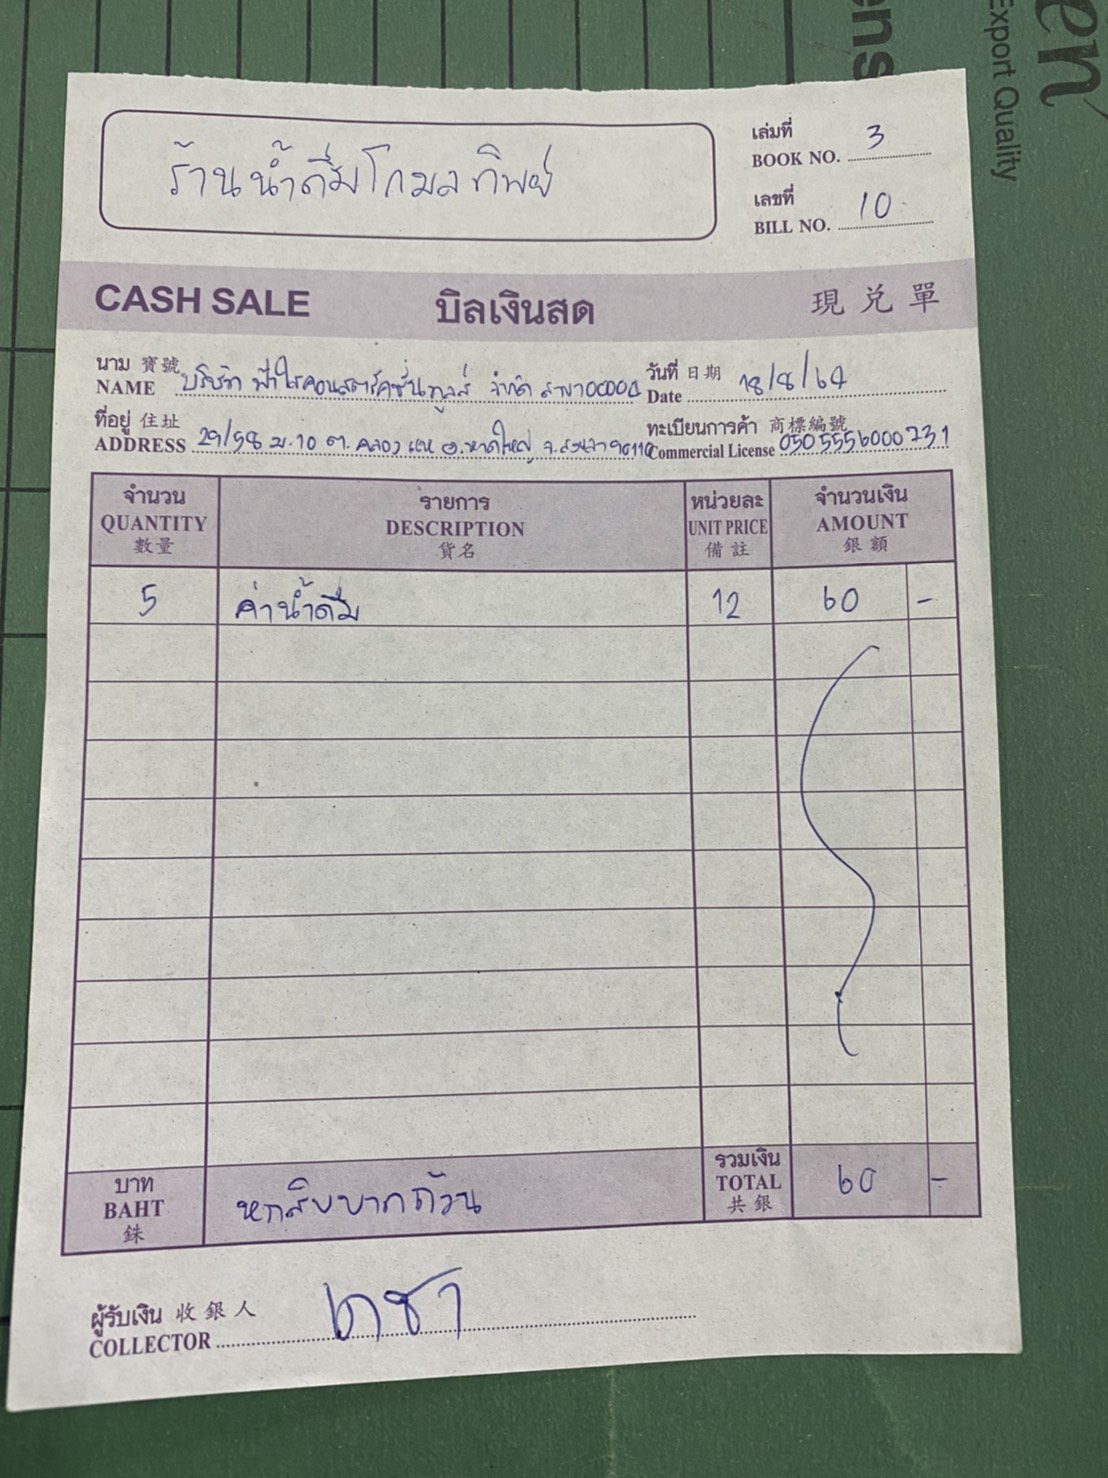 ens
Export Quality
en
ร้านน้ำดื่มโกมลทิพย์
เล่มที่
BOOK NO. 3
เลขที่
BILL NO. 10
CASH SALE บิลเงินสด 現兑單
นาม 寶號
NAME บริษัท ฟ้าใสคอนสตรัคชั่นทูลส์ จำกัด สาขา00004
วันที่ 日期
Date 18/8/64
ที่อยู่ 住址
ADDRESS 29/58 ม.10 ต.คลองแห อ.หาดใหญ่ จ.สงขลา 90110
ทะเบียนการค้า 商標編號
Commercial License 0505556000731
จำนวน รายการ หน่วยละ จำนวนเงิน
QUANTITY DESCRIPTION UNIT PRICE AMOUNT
數量 貨名 備註 銀額
5 ค่าน้ำดื่ม 12 60 -
บาท
BAHT
銖
หกสิบบาทถ้วน
รวมเงิน
TOTAL
共銀
60 -
ผู้รับเงิน 收銀人
COLLECTOR เดชา